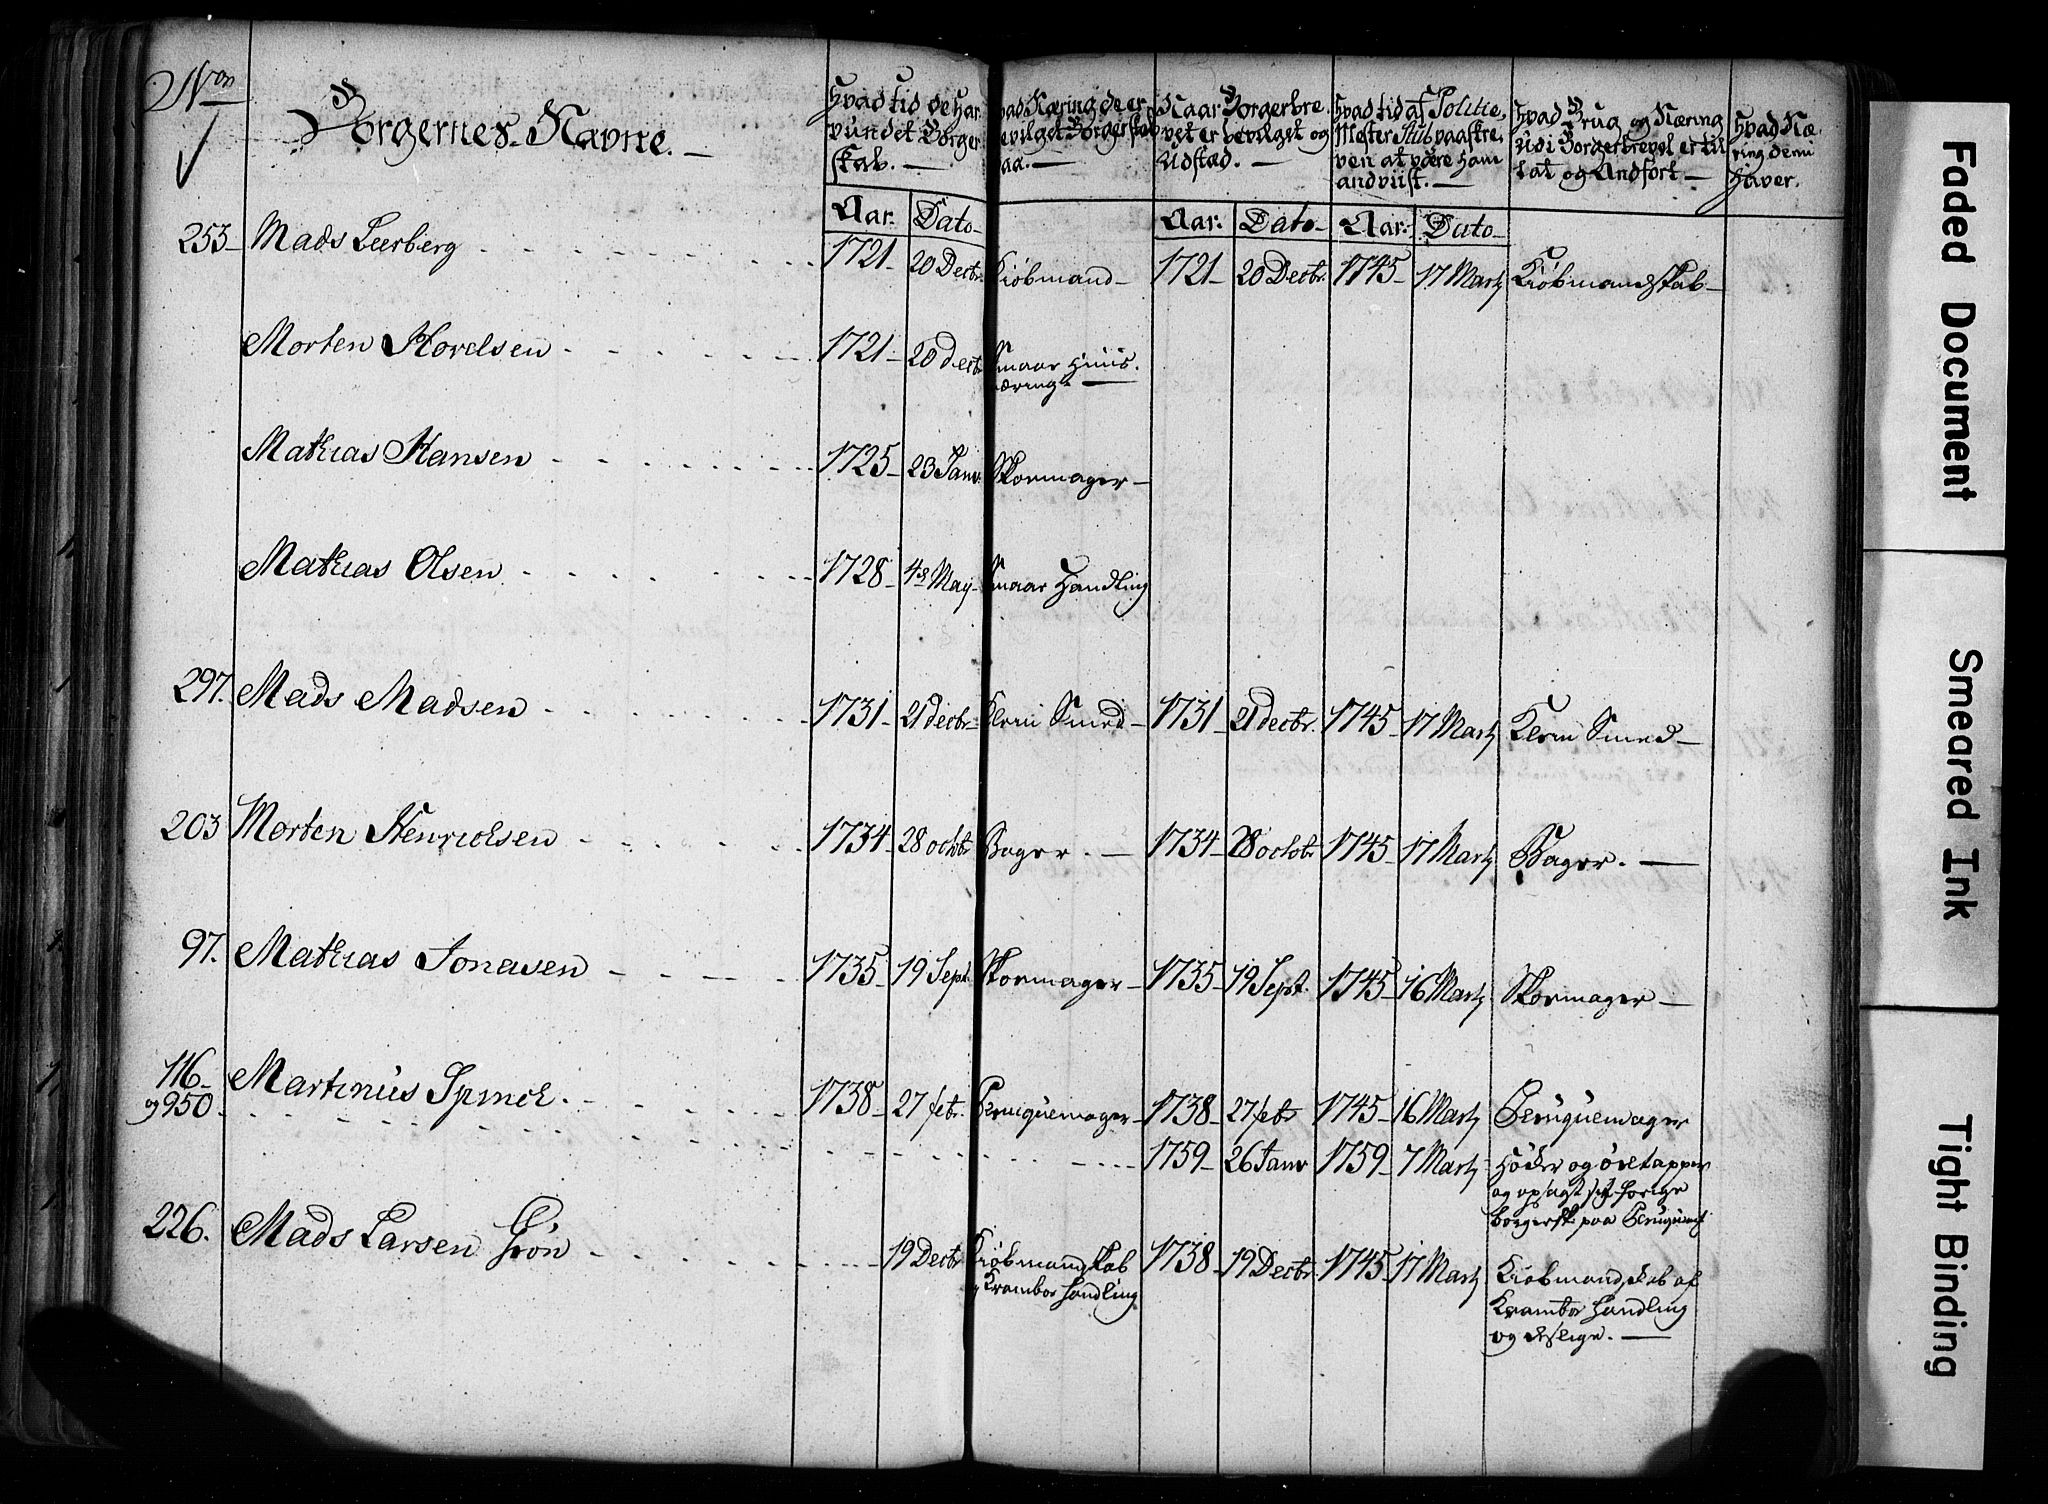 Non
Borgernes Navne. —
Hvad tid de har
vundet Borger
skab. —
Hvad Næring de er
bevilget Borgerskab
paa. —
Naar Borgerbre
vet er bevilget og
Udstæd. —
Hvad tid af Politie
Mester Stub paaskre
ven at være ham
andviist. —
Hvad Brug og Næring
udi Borgerbrevet er til
lat og Andført —
Hvad Næ
ring de nu
haver.
Aar. Dato Aar. Dato Aar. Dato
253 Mads Leerberg 1721 20 Decbr. Kiøbmand 1721 20 Decbr. 1745 17 Marty Kiøbmandskab
Morten Hovelsen 1721 20 decbr Smaar Huus
næring
Mathias Hansen 1725 23 Janv. Skoemager
Mathias Olsen 1728 4 May Smaar Handling
297. Mads Madsen 1731 21 decbr Klein Smed 1731 21 decbr. 1745 17 Marty Klein Smed
203 Morten Henrichsen 1734 28 octobr Bager. — 1734 28 octobr 1745 17 Marty Bager. —
97. Mathias Jonasen 1735 19 Sept. Skoemager 1735 19 Sept. 1745 16 Marty Skoemager
116 Martinus Spinck. 1738 27 febr. Peruquemager 1738 27 febr 1745 16 Marty Peruquemager
og 950 1759 26 Janv 1759 7 Marty Høcker og øltapper
og opsagt sit forrige
borgersk. paa Peruquem
226. Mads Larsen Grøn 19 Decbr Kiøbmandskab 1738 19 Decbr. 1745 17 Marty Kiøbmandskab af
og Kramboe Handling Kramboe Handling
og deslige. —
Faded Document
Smeared Ink
Tight Binding